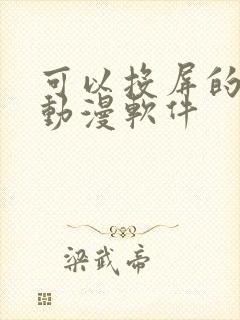 可以投屏的
動漫軟件
梁武帝